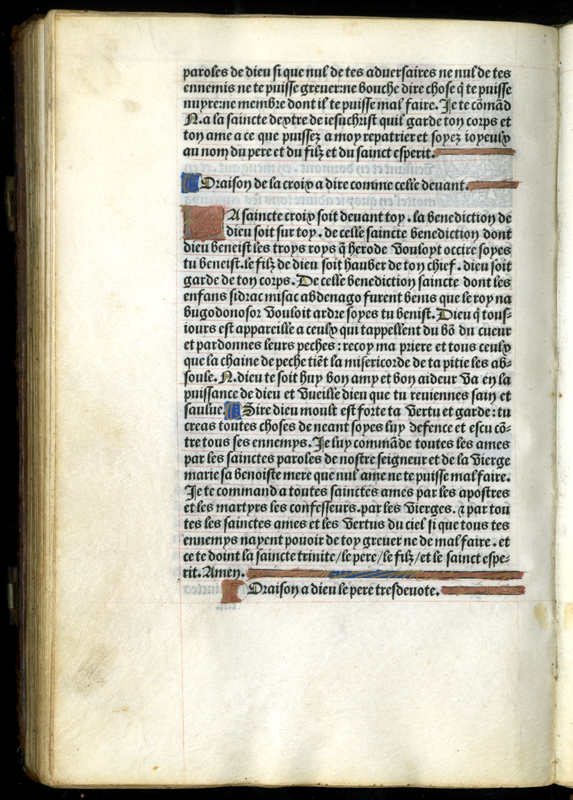 paroles de dieu si que nul de tes aduersaires ne nul de tes
ennemis ne te puisse greuer:ne bouche dire chose q̃ te puisse
nuyre:ne membre dont il te puisse mal faire. Je te cõmãd
N. a la saincte dextre de iesuchrist quil garde ton corps et
ton ame a ce que puissez a moy repatrier et soyez ioyeulx
au nom du pere et du filz et du sainct esperit.
Oraison de la croix a dire comme celle deuant.
A saincte croix soit deuant toy. la benediction de
dieu soit sur toy. de celle saincte benediction dont
dieu beneist les troys roys q̃ herode vouloyt occire soyes
tu beneist. le filz de dieu soit hauber de ton chief. dieu soit
garde de ton corps. De celle benediction saincte dont les
enfans sidrac misac abdenago furent benis que le roy na
bugodonosor vouloit ardre soyes tu benist. Dieu q̃ tous-
iours est appareille a ceulx qui tappellent du bõ du cueur
et pardonnes leurs peches: recoy ma priere et tous ceulx
que la chaine de peche tiẽt la misericorde de ta pitie les ab-
soulle. N. dieu te soit huy bon amy et bon aideur va en la
puissance de dieu et vueille dieu que tu reuiennes sain et
saulue. Sire dieu moult est forte ta vertu et garde: tu
creas toutes choses de neant soyes luy defence et escu cõ-
tre tous ses ennemys. Je luy commãde toutes les ames
par les sainctes paroles de nostre seigneur et de la vierge
marie sa benoiste mere que nul ame ne te puisse mal faire.
Je te command a toutes sainctes ames par les apostres
et les martyrs les confesseurs. par les vierges. ⁊ par tou
tes les sainctes ames et les vertus du ciel si que tous tes
ennemys nayent pouoir de toy greuer ne de mal faire. et
ce te doint la saincte trinite/le pere/le filz/et le sainct espe-
rit. Amen.
Oraison a dieu le pere tresdeuote.